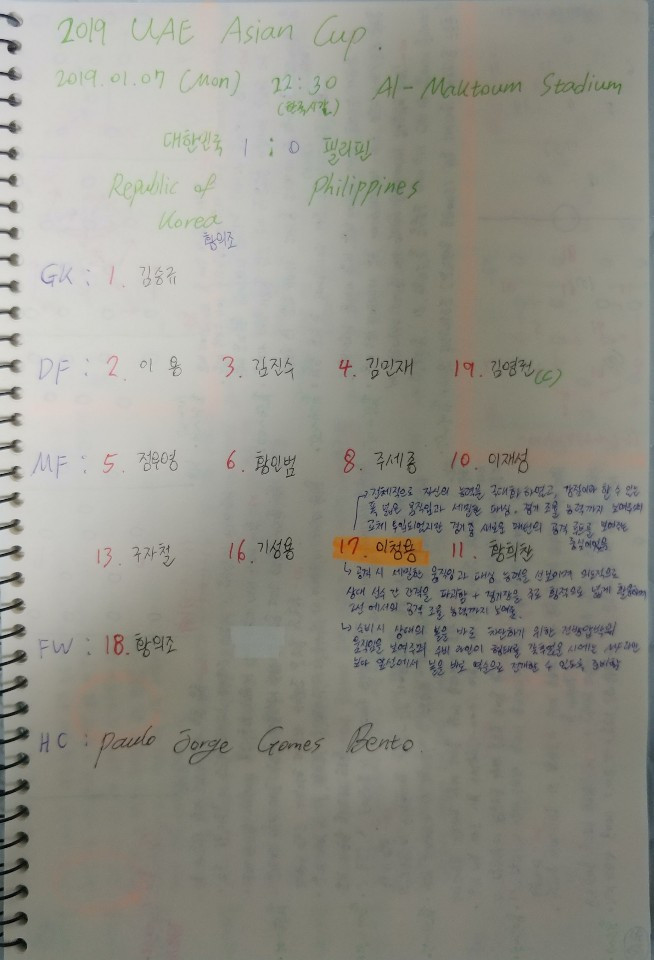 2019 UAE Asian Cup.
2019.01.07 (Mon) 22:30 Al-Maktoum Stadium
(한국시간)
대한민국 1 : 0 필리핀
Republic of Philippines
Korea
황의조
GK : 1. 김승규
DF : 2. 이 용 3. 김진수 4. 김민재 19. 김영권 (C)
MF : 5. 정우영 6. 황인범 8. 주세종 10. 이재성
전체적으로 자신의 능력을 극대화 하였고, 강점이라 할 수 있는
폭 넓은 움직임과 세밀한 패싱, 경기 조율 능력까지 보여주며
교체 투입되었지만 경기 중 새로운 패턴의 공격 루트를 보여주는
중심이었음
13. 구자철 16. 기성용 17. 이청용 11. 황희찬
공격 시 세밀한 움직임과 패싱 능력을 선보이며 의도적으로
상대 선수 간 간격을 파괴함 + 경기장을 주로 횡적으로 넓게 활용하며
2선에서의 공격 조율 능력까지 보여줌.
수비 시 상대의 볼을 바로 차단하기 위한 전방압박의
움직임을 보여주며 수비 라인이 형태를 갖추었을 시에는
보다 앞선에서 볼을 바로 역습으로 전개할 수 있도록 준비함
FW : 18. 황의조
HC : Paulo Jorge Gomes Bento.